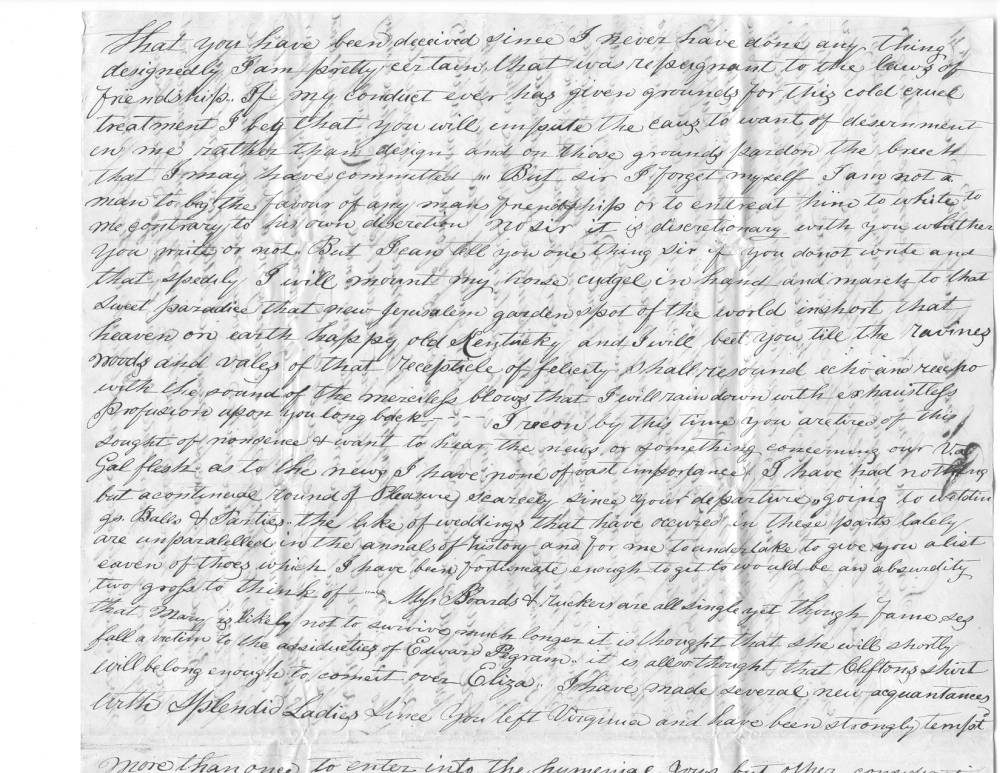 that you have been deceived since I never have done any thing
designedly I am pretty certain that was repugnant to the laws of
friendship. If my conduct ever has given grounds for this cold cruel
treatment I beg that you will impute the caus to want of desernment
in me rather than design and on those grounds pardon the breech
that I may have committed " But sir I forget myself I am not a
man to beg the favour of any man friendship or to entreat him to white to
me contrary to his own discretion no sir it is discretionary with you whither
you write or not. But I can tell you one thing sir if you donot write and
that spedily I will mount my horse cudgel in hand and march to that
sweet paradice that new Jerusalem garden spot of the world inshort that
heaven on earth happy old Kentucky and I will beet you till the ravines
woods and vales of that recepticle of felicity shall resound echo and
with the sound of the merciless blows that I will rain down with exhaustless
profusion upon you long back - - - - I recon by this time you are tired of this
sought of nonsence & want to hear the news or something concerning our Va
Gal flesh as to the news I have none of vast importance I have had nothing
but a continual round of Pleasure scarcely since your departure, going to weddin
gs. Balls & Parties. the like of weddings that have occured in these parts lately
are unparalelled in the annals of history and for me to undertake to give you a list
eaven of thoes which I have been fortunate enough to git to would be an absurdity
two gross to think of Boards & Ruckers are all single yet though Fame ses
that Mary is likely not to survive much longer it is thought that she will shortly
fall a victim to the assiduities of Edward Pigram. it is allso thought that Cliftons shirt
will be long enough to come it over Eliza. I have made several new acquantances
with Splendid Ladies Since you left Virginia and have been strongly tempt
more than once to enter into the hymenial but other